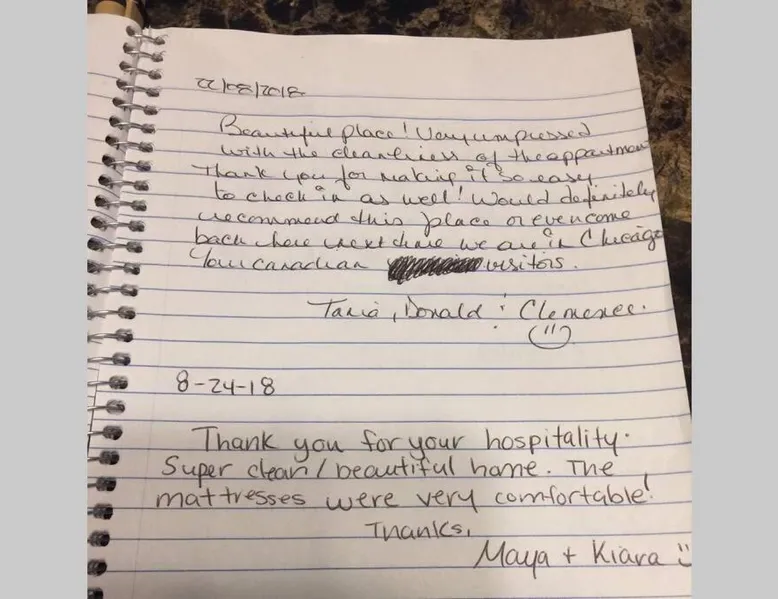 22/08/2018
Beautiful place! Very impressed
with the cleanliness of the appartment
Thank you for making it so easy
to check in as well! Would definitely
recommend this place or even come
back here next time we are in Chicago
Your canadian visitors.
Tania, Donald & Clemence.
8-24-18
Thank you for your hospitality.
Super clean/beautiful home. The
mattresses were very comfortable!
Thanks,
Maya + Kiara :)